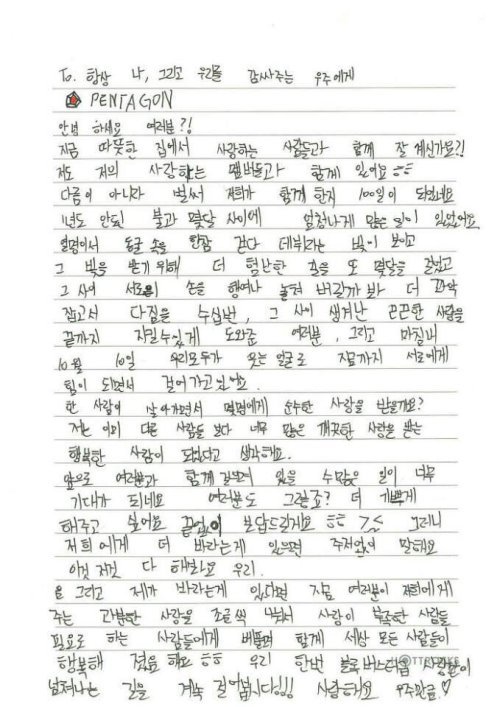 To. 항상 나, 그리고 우리를 감싸주는 우주에게
PENTAGON
안녕 하세요 여러분?!
지금 따뜻한 집에서 사랑하는 사람들과 함께 잘 계신가요?!
저도 저의 사랑하는 멤버들과 함께 있어요 ㅎㅎ
다름이 아니라 벌써 저희가 함께 한지 100일이 되었네요
1년도 안된 불과 몇달 사이에 엄청나게 많은 일이 있었어요
열명이서 동굴 속을 한참 걷다 데뷔라는 빛이 보이고
그 빛을 받기 위해 더 험난한 길을 또 몇달을 걸었고
그 사이 서로의 손을 행여나 놓쳐 버릴까봐 더 꽈악
잡고서 다짐을 수십번, 그 사이 생겨난 끈끈한 사람을
끝까지 지킬수있게 도와준 여러분, 그리고 마침내
10월 10일 우리모두가 웃는 얼굴로 지금까지 서로에게
힘이 되면서 걸어가고있어요.
한 사람이 살아가면서 몇명에게 순수한 사랑을 받을까요?
저는 이미 다른 사람들 보다 너무 많은 깨끗한 사랑을 받는
행복한 사람이 되었다고 생각해요.
앞으로 여러분과 함께 걸으며 있을 수많은 일이 너무
기대가 되네요 여러분도 그렇죠? 더 기쁘게
해주고 싶어요 끝없이 보답드릴게요 ㅎㅎ 그러니
저희에게 더 바라는게 있으면 주저없이 말해요
이것 저것 다 해봐요 우리.
그리고 제가 바라는게 있다면 지금 여러분이 저희에게
주는 과분한 사랑을 조금씩 나눠서 사랑이 부족한 사람들
필요로 하는 사람들에게 베풀며 함께 세상 모든 사람들이
행복해 졌음 해요 ㅎㅎ 우리 한번 블록버스터급 사랑이
넘쳐나는 길을 계속 걸어봅시다!!! 사랑해요 우주만큼♡